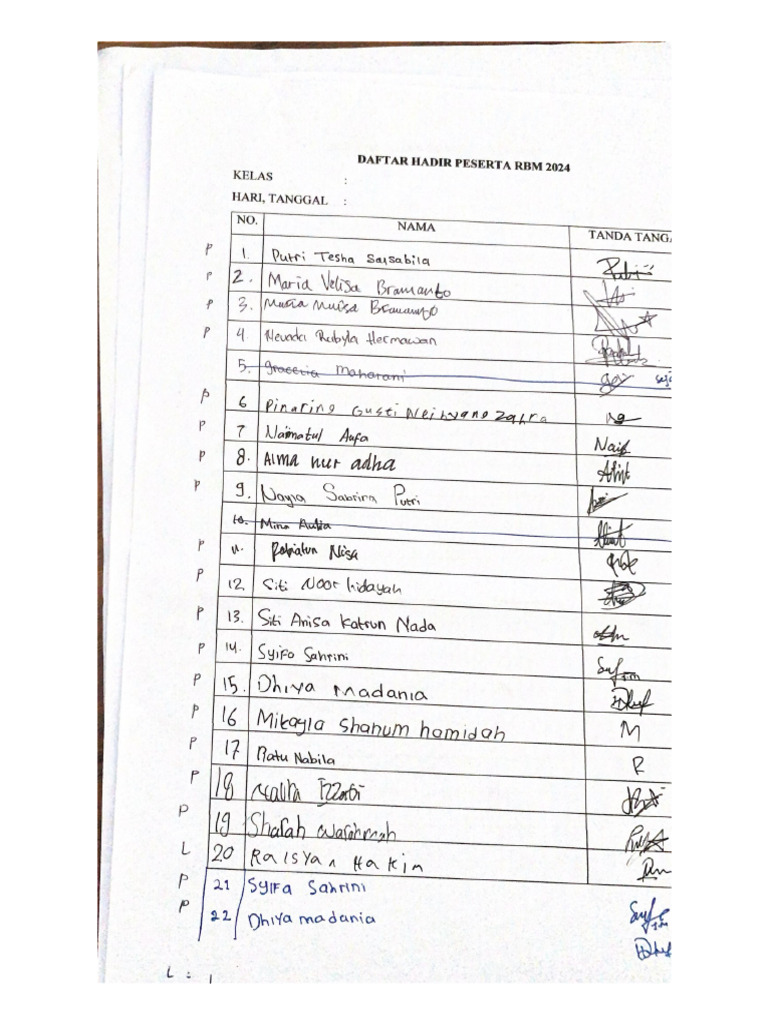 DAFTAR HADIR PESERTA RBM 2024
KELAS :
HARI, TANGGAL :
NO. NAMA TANDA TANGA
P 1. Putri Tesha Salsabila
P 2. Maria Velisa Bramanto
P 3. Maria Bramanto
P 4. Nevada Rabyla Hermawan
5. gracecia maharani
P 6 Pinaring Gusti Zahra
P 7 Naimatul Aufa Naif
P 8. Alma nur adha
P 9. Nayla Sabrina Putri
10. Mina Aulia
P 11. Robiatun Nisa
P 12. Siti Noor hidayah
P 13. Siti Anisa Katrun Nada
P 14. Syifa Sahrini
P 15. Dhiya madania
P 16 Mikayla shanum hamidah M
P 17 Ratu Nabila R
P 18 Malika Izzati
P 19 Sharah warahmah
L 20 Raisyan Hakim
P 21 Syifa Sahrini
P 22 Dhiya madania
L :